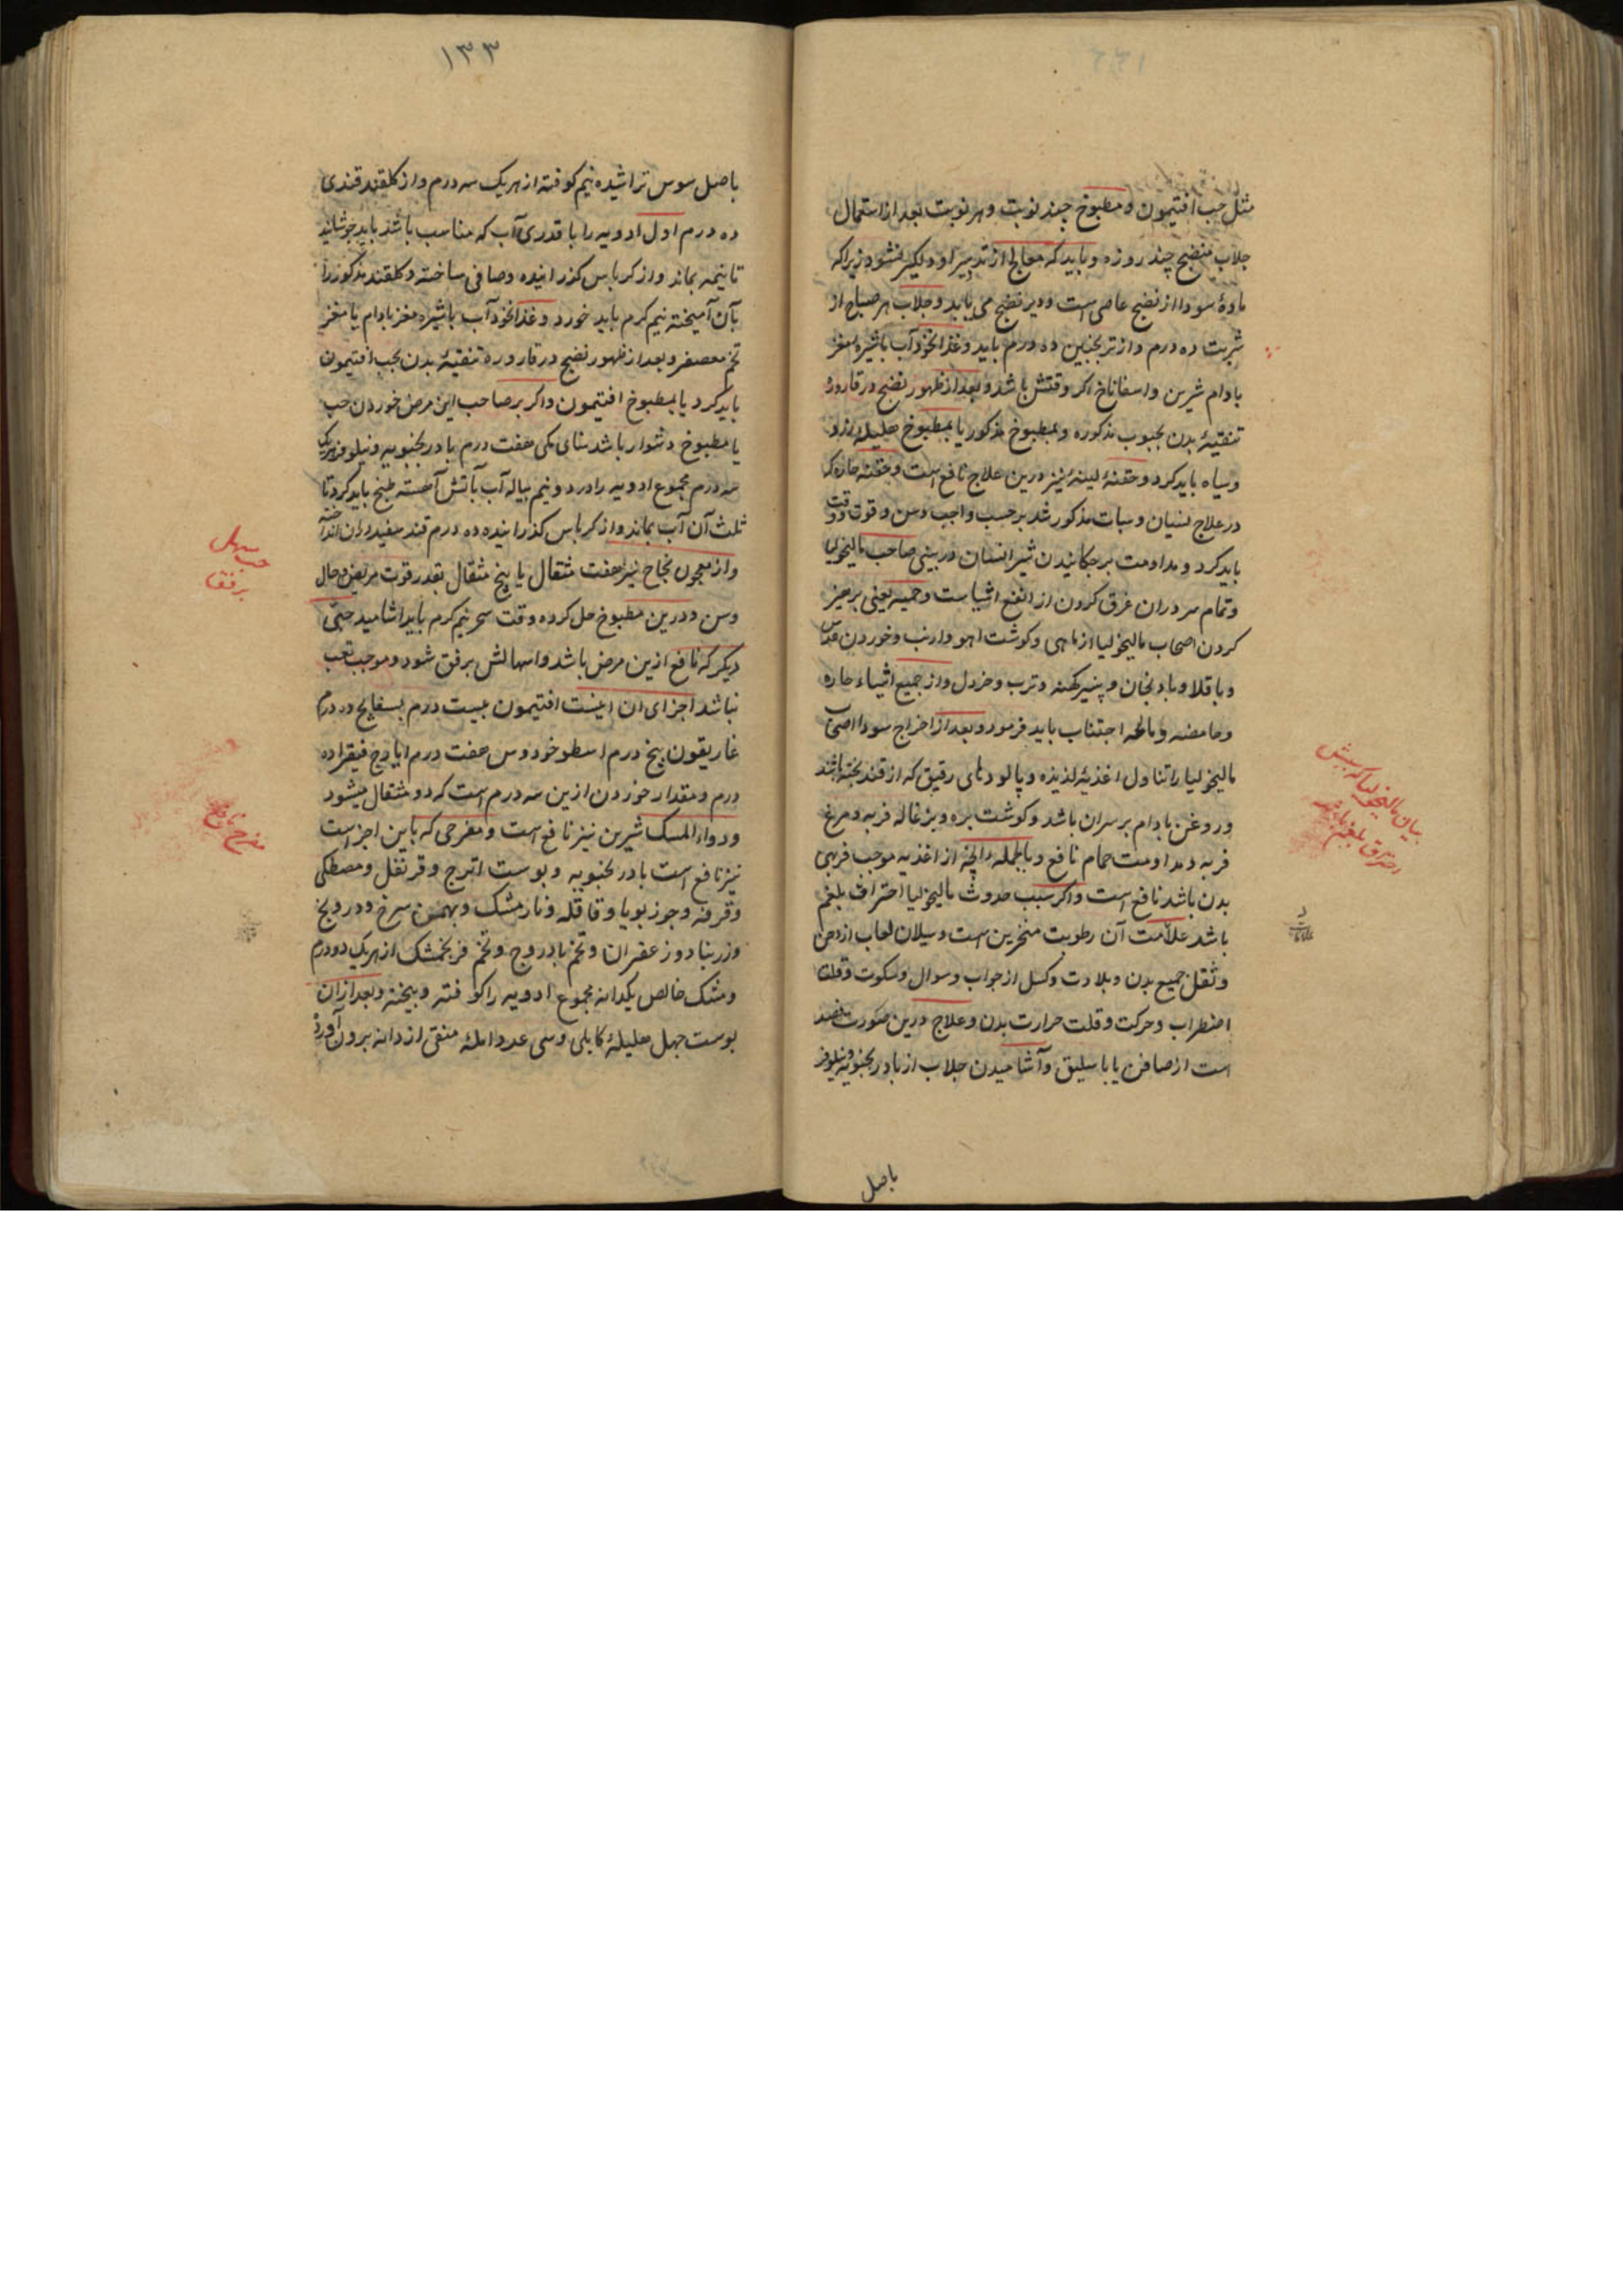 مثل حب افتیمون و مطبوخ چند نوبت و هر نوبت بعد از استعمال
جلاب منضج چند روزه و باید که معالج از تدبیر او دلگیر نشود زیرا که
مادهٔ سودا از نضج عاصی است و دیر نضج می یابد و جلاب هر صباح از
شربت ده درم و از ترنجبین ده درم باید و غذا نخودآب با شیره مغز
بادام شیرین و اسفاناخ اگر وقتش باشد و بعد از ظهور نضج در قاروره
تنقیهٔ بدن بحبوب مذکوره و بمطبوخ مذکور یا بمطبوخ هلیله زرد
و سیاه باید کرد و حقنهٔ لینه نیز درین علاج نافع است و حقنه حاره که
در علاج نسیان و سبات مذکور شد بر حسب واجب و سن و قوت و وقت
باید کرد و مداومت بر چکانیدن شیر انسان در بینی صاحب مالیخولیا
و تمام سر در ان غرق کردن از انفع اشیاست و حمیه یعنی پرهیز
کردن اصحاب مالیخولیا از ماهی و کوشت اهو و ارنب و خوردن عدس
و باقلا و بادنجان و پنیر کهنه و ترب و خردل و از جمیع اشیاء حاره
و حامضه و مالحه اجتناب باید فرمود و بعد از اخراج سودا اصحاب
مالیخولیا را تناول اغذیهٔ لذیذه و پالودهای رقیق که از قند پخته باشند
و روغن بادام بر سر ان باشد و کوشت بره و بزغاله فربه و مرغ
فربه و مداومت حمام نافع و بالجمله هر انچه از اغذیه موجب فربهی
بدن باشد نافع است و اکر سبب حدوث مالیخولیا احتراق بلغم
باشد علامت آن رطوبت منخرین است و سیلان لعاب از دهن
و ثقل جمیع بدن و بلادت و کسل از جواب و سوال و سکوت و قلت
اضطراب و حرکت و قلت حرارت بدن و علاج درین صورت فصد
است از صافن یا باسلیق و آشامیدن جلاب از بادرنجبویه و نیلوفر
باصل
بیان مالیخولیا که سببش
احتراق بلغم باشد
۱۳۳
باصل سوس تراشیده نیم کوفته از هر یک سه درم و از کلقند قندی
ده درم اول ادویه را با قدری آب که مناسب باشد باید جوشانید
تا نیمه بماند و از کرباس کذرانیده و صافی ساخته و کلقند مذکور را
بآن آمیخته نیم کرم باید خورد و غذا نخودآب با شیره مغز بادام یا مغز
تخم معصفر و بعد از ظهور نضج در قاروره تنقیهٔ بدن بحب افتیمون
باید کرد یا بمطبوخ افتیمون و اکر بر صاحب این مرض خوردن حب
یا مطبوخ دشوار باشد سنای مکی هفت درم بادرنجبویه و نیلوفر هر یک
سه درم مجموع ادویه را در دو نیم پیاله آب بآتش آهسته طبخ باید کرد تا
ثلث آن آب بماند و از کرباس کذرانیده ده درم قند سفید در ان انداخته
و از معجون نجاح نیز هفت مثقال یا پنج مثقال بقدر قوت مریض و حال
و سن و درین مطبوخ حل کرده وقت سحر نیم کرم باید اشامید حبی
دیکر که نافع ازین مرض باشد و اسهالش برفق شود و موجب تعب
نباشد اجزای ان اینست افتیمون بیست درم بسفایج ده درم
غاریقون پنج درم اسطوخودوس هفت درم ایارج فیقرا ده
درم و مقدار خوردن ازین سه درم است که دو مثقال میشود
و دواء المسک شیرین نیز نافع است و مفرحی که باین اجزاست
نیز نافع است بادرنجبویه و پوست اترج و قرنفل و مصطکی
و قرفه و جوز بویا و قاقله و نارمشک و بهمن سرخ و درونج
و زرنباد و زعفران و تخم بادروج و تخم فرنجمشک از هر یک دو درم
و مشک خالص یکدانه مجموع ادویه را کوفته و بیخته و بعد از ان
پوست چهل هلیلهٔ کابلی و سی عدد املهٔ منقی از دانه برون آورده
حب مسهل
برفق
مفرح نافع